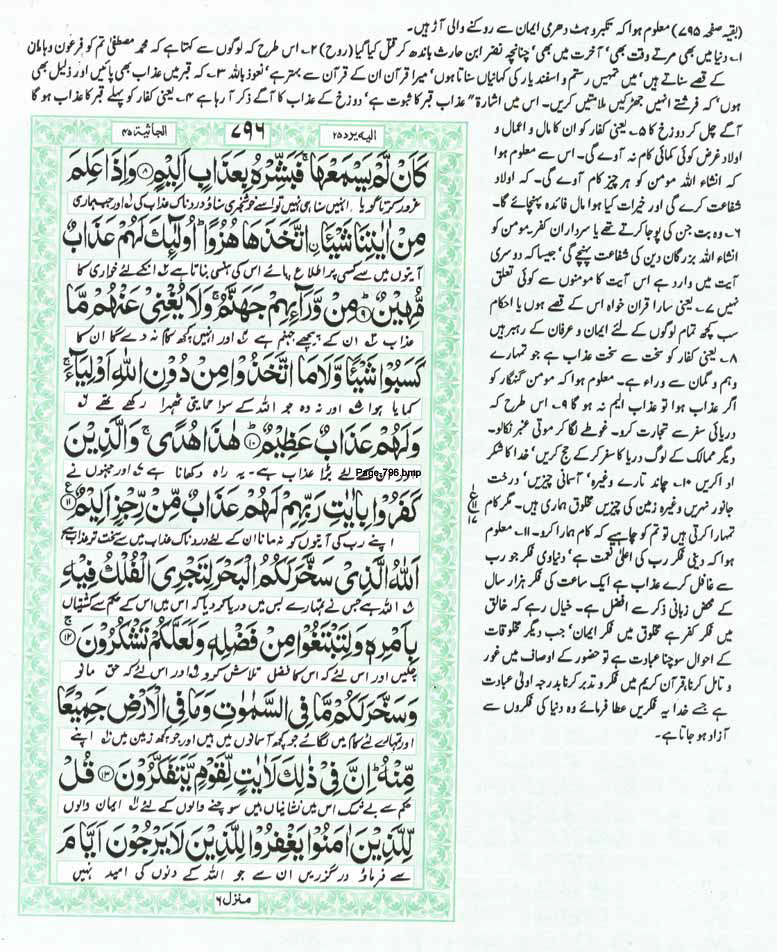 (بقیہ صفحہ ۷۹۵) معلوم ہوا کہ تکبر و ہٹ دھرمی ایمان سے روکنے والی آڑ ہیں۔
۱۔ دنیا میں بھی مرتے وقت بھی' آخرت میں بھی' چنانچہ نضر ابن حارث باندھ کر قتل کیا گیا (روح) ۲۔ اس طرح کہ لوگوں سے کہتا ہے کہ محمد مصطفیٰ تم کو فرعون و ہامان
کے قصے سناتے ہیں' میں تمہیں رستم و اسفند یار کی کہانیاں سناتا ہوں' میرا قرآن ان کے قرآن سے بہتر ہے' نعوذ باللہ ۳۔ کہ قبر میں عذاب بھی پائیں اور ذلیل بھی
ہوں' کہ فرشتے انہیں جھڑکیں ملامتیں کریں۔ اس میں اشارۃ" عذاب قبر کا ثبوت ہے' دوزخ کے عذاب کا آگے ذکر آ رہا ہے ۴۔ یعنی کفار کو پہلے قبر کا عذاب ہو گا
آگے چل کر دوزخ کا ۵۔ یعنی کفار کو ان کا مال و اعمال و
اولاد غرض کوئی کمائی کام نہ آوے گی۔ اس سے معلوم ہوا
کہ انشاء اللہ مومن کو ہر چیز کام آوے گی۔ کہ اولاد
شفاعت کرے گی اور خیرات کیا ہوا مال فائدہ پہنچائے گا۔
۶۔ وہ بت جن کی پوجا کرتے تھے یا سرداران کفر مومن کو
انشاء اللہ بزرگان دین کی شفاعت پہنچے گی' جیسا کہ دوسری
آیت میں وارد ہے اس آیت کا مومنوں سے کوئی تعلق
نہیں ۷۔ یعنی سارا قرآن خواہ اس کے قصے ہوں یا احکام
سب کچھ تمام لوگوں کے لئے ایمان و عرفان کے رہبر ہیں
۸۔ یعنی کفار کو سخت سے سخت عذاب ہے جو تمہارے
وہم و گمان سے وراء ہے۔ معلوم ہوا کہ مومن گنہگار کو
اگر عذاب ہوا تو عذاب الیم نہ ہو گا ۹۔ اس طرح کہ
دریائی سفر سے تجارت کرو۔ غوطے لگا کر موتی عنبر نکالو۔
دیگر ممالک کے لوگ دریا کا سفر کر کے حج کریں' خدا کا شکر
ادا کریں ۱۰۔ چاند تارے وغیرہ' آسمانی چیزیں' درخت
جانور نہریں وغیرہ زمین کی چیزیں مخلوق ہماری ہیں۔ مگر کام
تمہارا کرتی ہیں تو تم کو چاہیے کہ کام ہمارا کرو۔ ۱۱۔ معلوم
ہوا کہ دینی فکر رب کی اعلیٰ نعمت ہے' دنیاوی فکر جو رب
سے غافل کرے عذاب ہے ایک ساعت کی فکر ہزار سال
کے محض زبانی ذکر سے افضل ہے۔ خیال رہے کہ خالق
میں فکر کفر ہے مخلوق میں فکر ایمان' جب دیگر مخلوقات
کے احوال سوچنا عبادت ہے تو حضور کے اوصاف میں غور
و تامل کرنا' قرآن کریم میں فکر و تدبر کرنا بدرجہ اولیٰ عبادت
ہے جسے خدا یہ فکریں عطا فرمائے وہ دنیا کی فکروں سے
آزاد ہو جاتا ہے۔
الیہ یرد ۲۵ ۷۹۶ الجاثیۃ ۴۵
كَاَنْ لَّمْ يَسْمَعْهَا ۚ فَبَشِّرْهُ بِعَذَابٍ اَلِيْمٍ ۸ وَاِذَا عَلِمَ
غرور کرتا گویا انہیں سنا ہی نہیں تو اسے خوشخبری سناؤ دردناک عذاب کی اور جب ہماری
مِنْ اٰيٰتِنَا شَيْـًٔا اتَّخَذَهَا هُزُوًا ؕ اُولٰٓئِكَ لَهُمْ عَذَابٌ
آیتوں میں سے کسی پر اطلاع پائے اس کی ہنسی بناتا ہے ان کے لئے خواری کا
مُّهِيْنٌ ۹ مِنْ وَّرَآئِهِمْ جَهَنَّمُ ۚ وَلَا يُغْنِيْ عَنْهُمْ مَّا
عذاب ان کے پیچھے جہنم ہے اور انہیں کچھ کام نہ دے گا ان کا
كَسَبُوْا شَيْـًٔا وَّلَا مَا اتَّخَذُوْا مِنْ دُوْنِ اللّٰهِ اَوْلِيَآءَ ۚ
کمایا ہوا اور نہ وہ جو اللہ کے سوا حمایتی ٹھہرا رکھے تھے
وَلَهُمْ عَذَابٌ عَظِيْمٌ ۱۰ هٰذَا هُدًى ۚ وَالَّذِيْنَ
اور ان کے لئے بڑا عذاب ہے۔ یہ راہ دکھانا ہے اور جنہوں نے
Page-796.bmp
كَفَرُوْا بِاٰيٰتِ رَبِّهِمْ لَهُمْ عَذَابٌ مِّنْ رِّجْزٍ اَلِيْمٌ ۱۱
ع ۱۱ ۱۷
اپنے رب کی آیتوں کو نہ مانا ان کے لئے دردناک عذاب میں سے سخت تر عذاب ہے
اَللّٰهُ الَّذِيْ سَخَّرَ لَكُمُ الْبَحْرَ لِتَجْرِيَ الْفُلْكُ فِيْهِ
اللہ ہے جس نے تمہارے بس میں دریا کر دیا کہ اس میں اس کے حکم سے کشتیاں
بِاَمْرِهٖ وَلِتَبْتَغُوْا مِنْ فَضْلِهٖ وَلَعَلَّكُمْ تَشْكُرُوْنَ ۱۲
چلیں اور اس لئے کہ اس کا فضل تلاش کرو اور اس لئے کہ حق مانو
وَسَخَّرَ لَكُمْ مَّا فِي السَّمٰوٰتِ وَمَا فِي الْاَرْضِ جَمِيْعًا
اور تمہارے لئے کام میں لگائے جو کچھ آسمانوں میں ہیں اور جو کچھ زمین میں اپنے
مِّنْهُ ؕ اِنَّ فِيْ ذٰلِكَ لَاٰيٰتٍ لِّقَوْمٍ يَّتَفَكَّرُوْنَ ۱۳ قُلْ
حکم سے بے شک اس میں نشانیاں ہیں سوچنے والوں کے لئے ایمان والوں
لِّلَّذِيْنَ اٰمَنُوْا يَغْفِرُوْا لِلَّذِيْنَ لَا يَرْجُوْنَ اَيَّامَ
سے فرماؤ درگزریں ان سے جو اللہ کے دنوں کی امید نہیں
منزل ۶